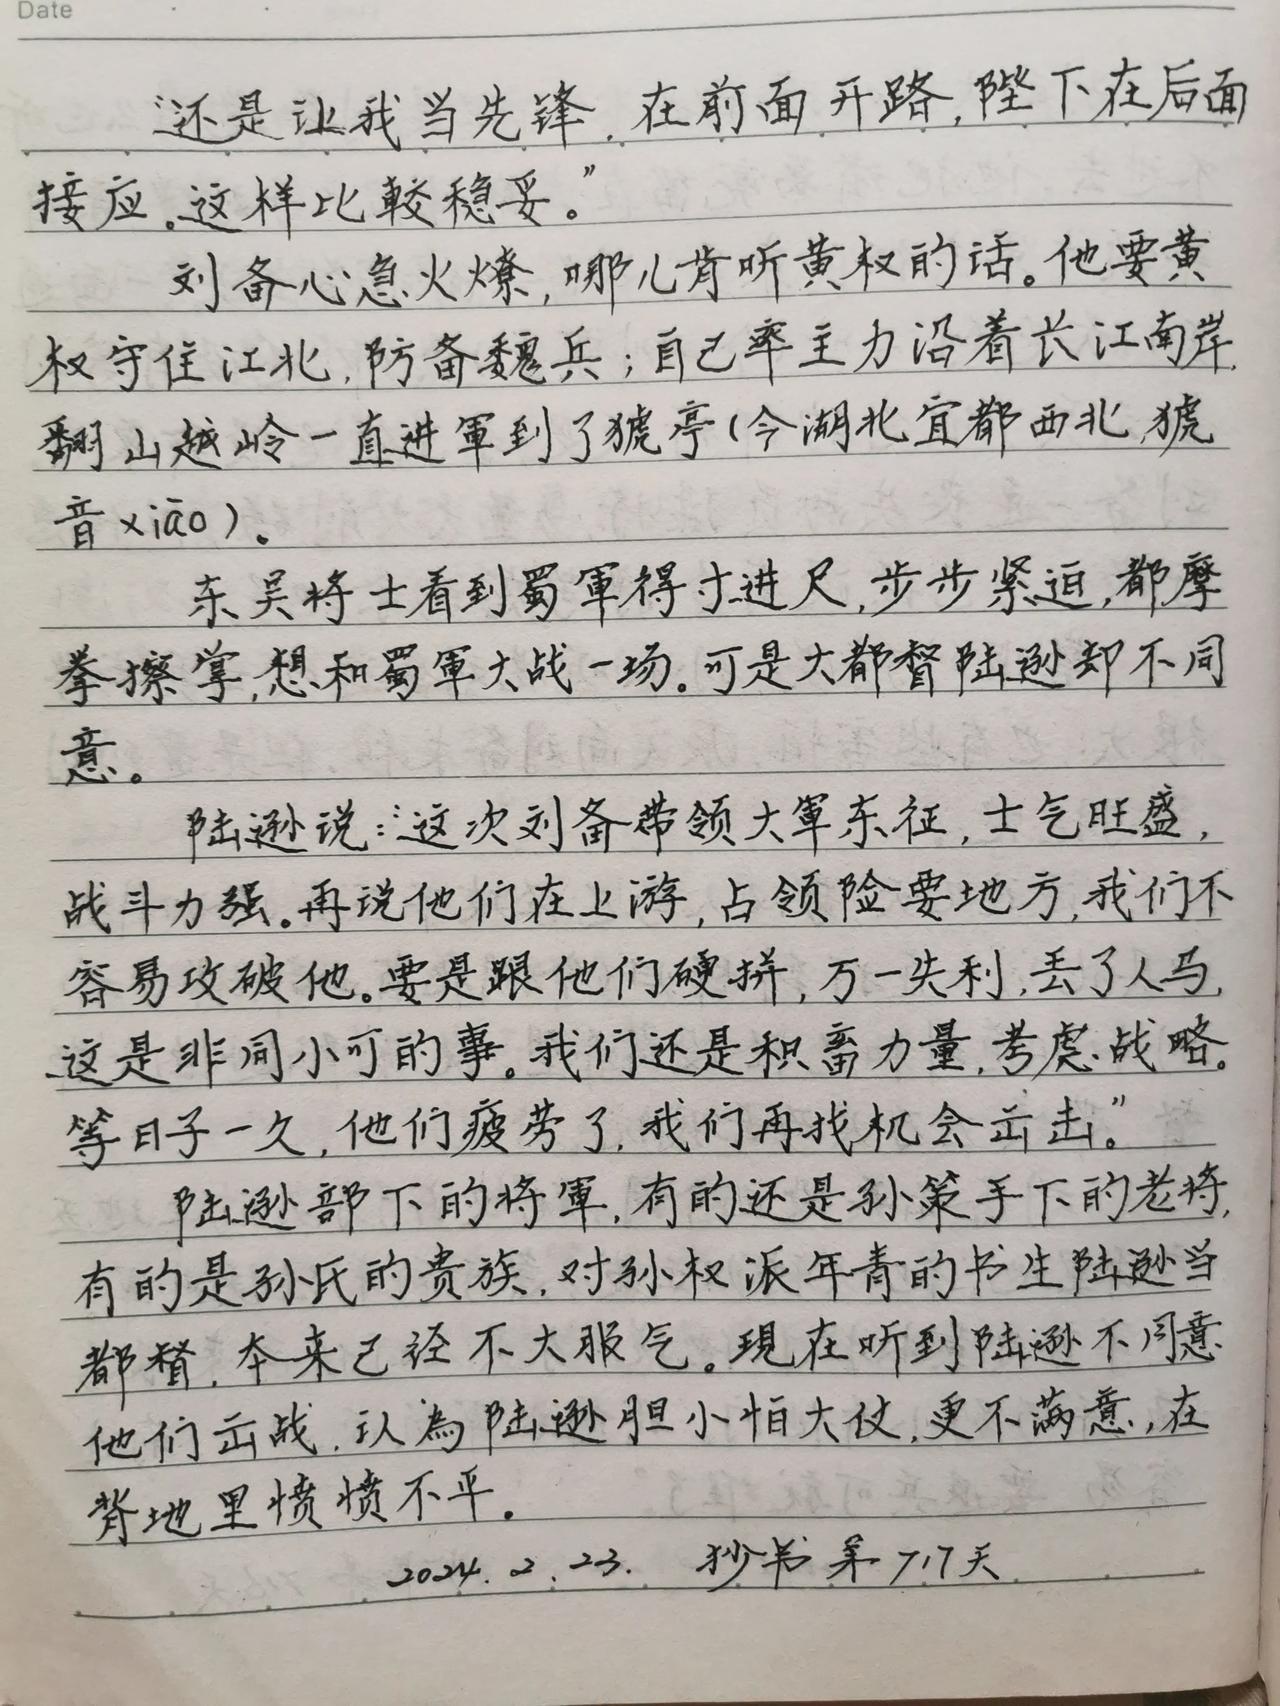 Date
“还是让我当先锋,在前面开路,陛下在后面
接应。这样比較稳妥。”
刘备心急火燎,哪儿肯听黄权的话。他要黄
权守住江北,防备魏兵;自己率主力沿着长江南岸,
翻山越岭一直进軍到了猇亭(今湖北宜都西北,猇
音xiāo)。
东吴将士看到蜀軍得寸进尺,步步紧迫,都摩
拳擦掌,想和蜀軍大战一场。可是大都督陆逊却不同
意。
陆逊说:“这次刘备带领大軍东征,士气旺盛,
战斗力强。再说他们在上游,占领险要地方,我们不
容易攻破他。要是跟他们硬拼,万一失利,丢了人马,
这是非同小可的事。我们还是积畜力量,考虑战略。
等日子一久,他们疲劳了,我们再找机会出击。”
陆逊部下的将軍,有的还是孙策手下的老将,
有的是孙氏的贵族,对孙权派年青的书生陆逊当
都督,本来已经不大服气。現在听到陆逊不同意
他们出战,认為陆逊胆小怕大仗,更不满意,在
背地里愤愤不平。
2024.2.23. 抄书第717天